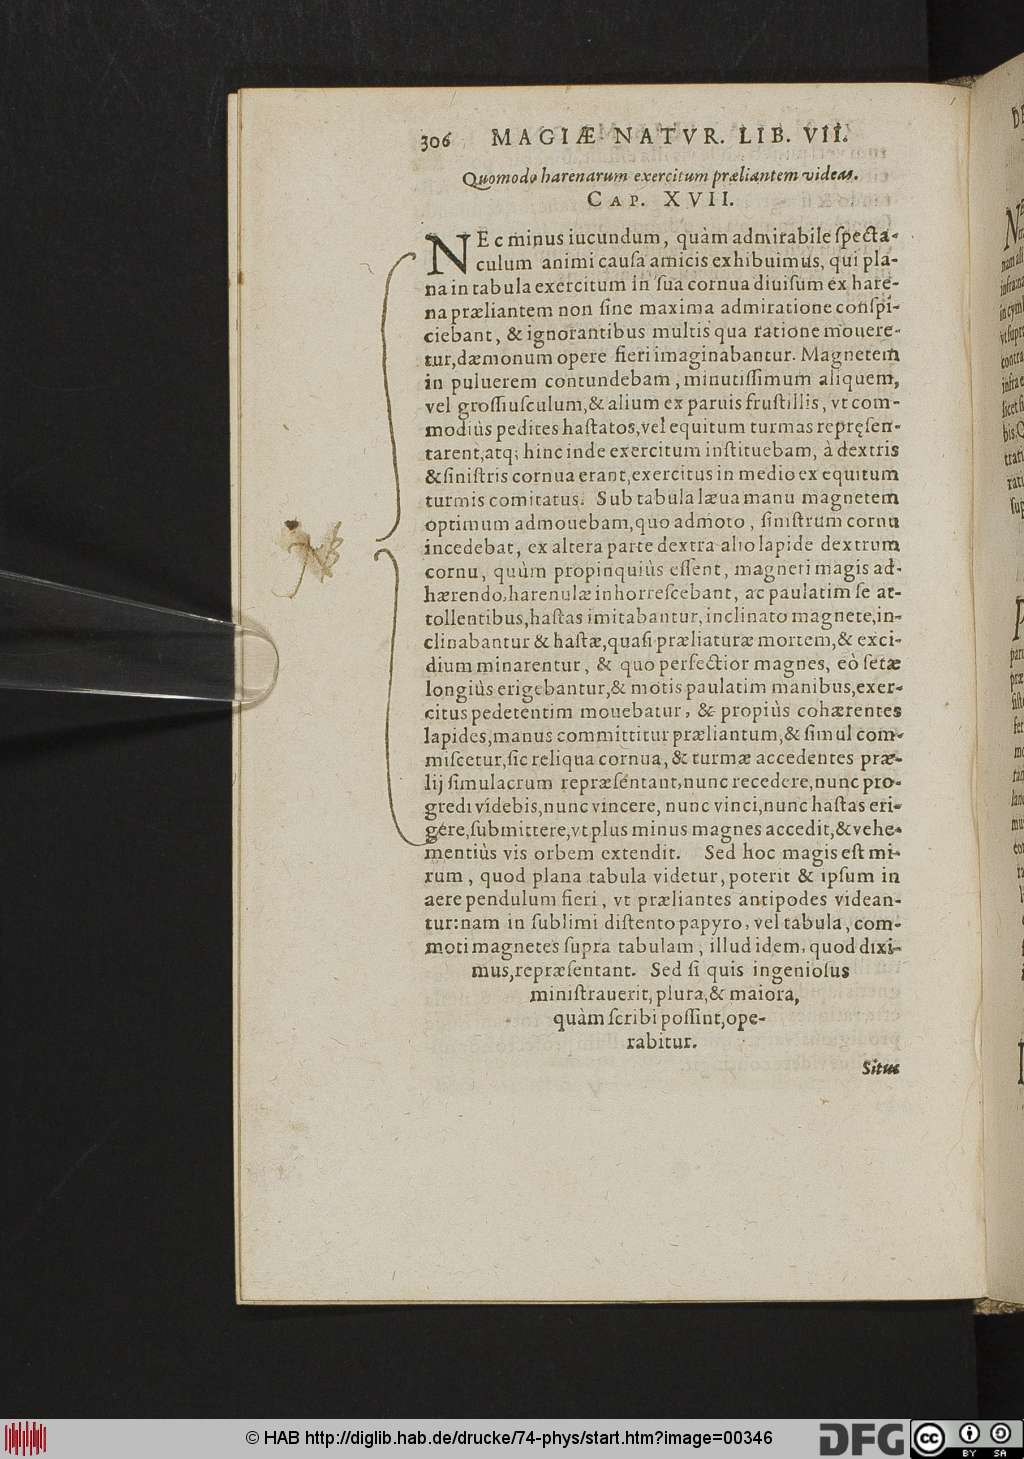 306 MAGIÆ NATVR. LIB. VII.
Quomodo harenarum exercitum præliantem videas.
CAP. XVII.
NEc minus iucundum, quàm admirabile ſpecta-
culum animi cauſa amicis exhibuimus, qui pla-
na in tabula exercitum in ſua cornua diuiſum ex hare-
na præliantem non ſine maxima admiratione conſpi-
ciebant, & ignorantibus multis qua ratione mouere-
tur, dæmonum opere fieri imaginabantur. Magnetem
in puluerem contundebam, minutiſſimum aliquem,
vel groſſiuſculum, & alium ex paruis fruſtillis, vt com-
modiùs pedites haſtatos, vel equitum turmas repręſen-
tarent, atq; hinc inde exercitum inſtituebam, à dextris
& ſiniſtris cornua erant, exercitus in medio ex equitum
turmis comitatus. Sub tabula læua manu magnetem
optimum admouebam, quo admoto, ſiniſtrum cornu
incedebat, ex altera parte dextra alio lapide dextrum
cornu, quùm propinquiùs eſſent, magneti magis ad-
hærendo, harenulæ inhorreſcebant, ac paulatim ſe at-
tollentibus, haſtas imitabantur, inclinato magnete, in-
clinabantur & haſtæ, quaſi præliaturæ mortem, & exci-
dium minarentur, & quo perfectior magnes, eò ſetæ
longiùs erigebantur, & motis paulatim manibus, exer-
citus pedetentim mouebatur, & propiùs cohærentes
lapides, manus committitur præliantum, & ſimul com-
miſcetur, ſic reliqua cornua, & turmæ accedentes præ-
lij ſimulacrum repræſentant, nunc recedere, nunc pro-
gredi videbis, nunc vincere, nunc vinci, nunc haſtas eri-
gere, ſubmittere, vt plus minus magnes accedit, & vehe-
mentiùs vis orbem extendit. Sed hoc magis eſt mi-
rum, quod plana tabula videtur, poterit & ipſum in
aere pendulum fieri, vt præliantes antipodes videan-
tur: nam in ſublimi diſtento papyro, vel tabula, com-
moti magnetes ſupra tabulam, illud idem, quod dixi-
mus, repræſentant. Sed ſi quis ingenioſus
miniſtrauerit, plura, & maiora,
quàm ſcribi poſſint, ope-
rabitur.
Situs
NB
© HAB http://diglib.hab.de/drucke/74-phys/start.htm?image=00346
DFG
cc BY SA